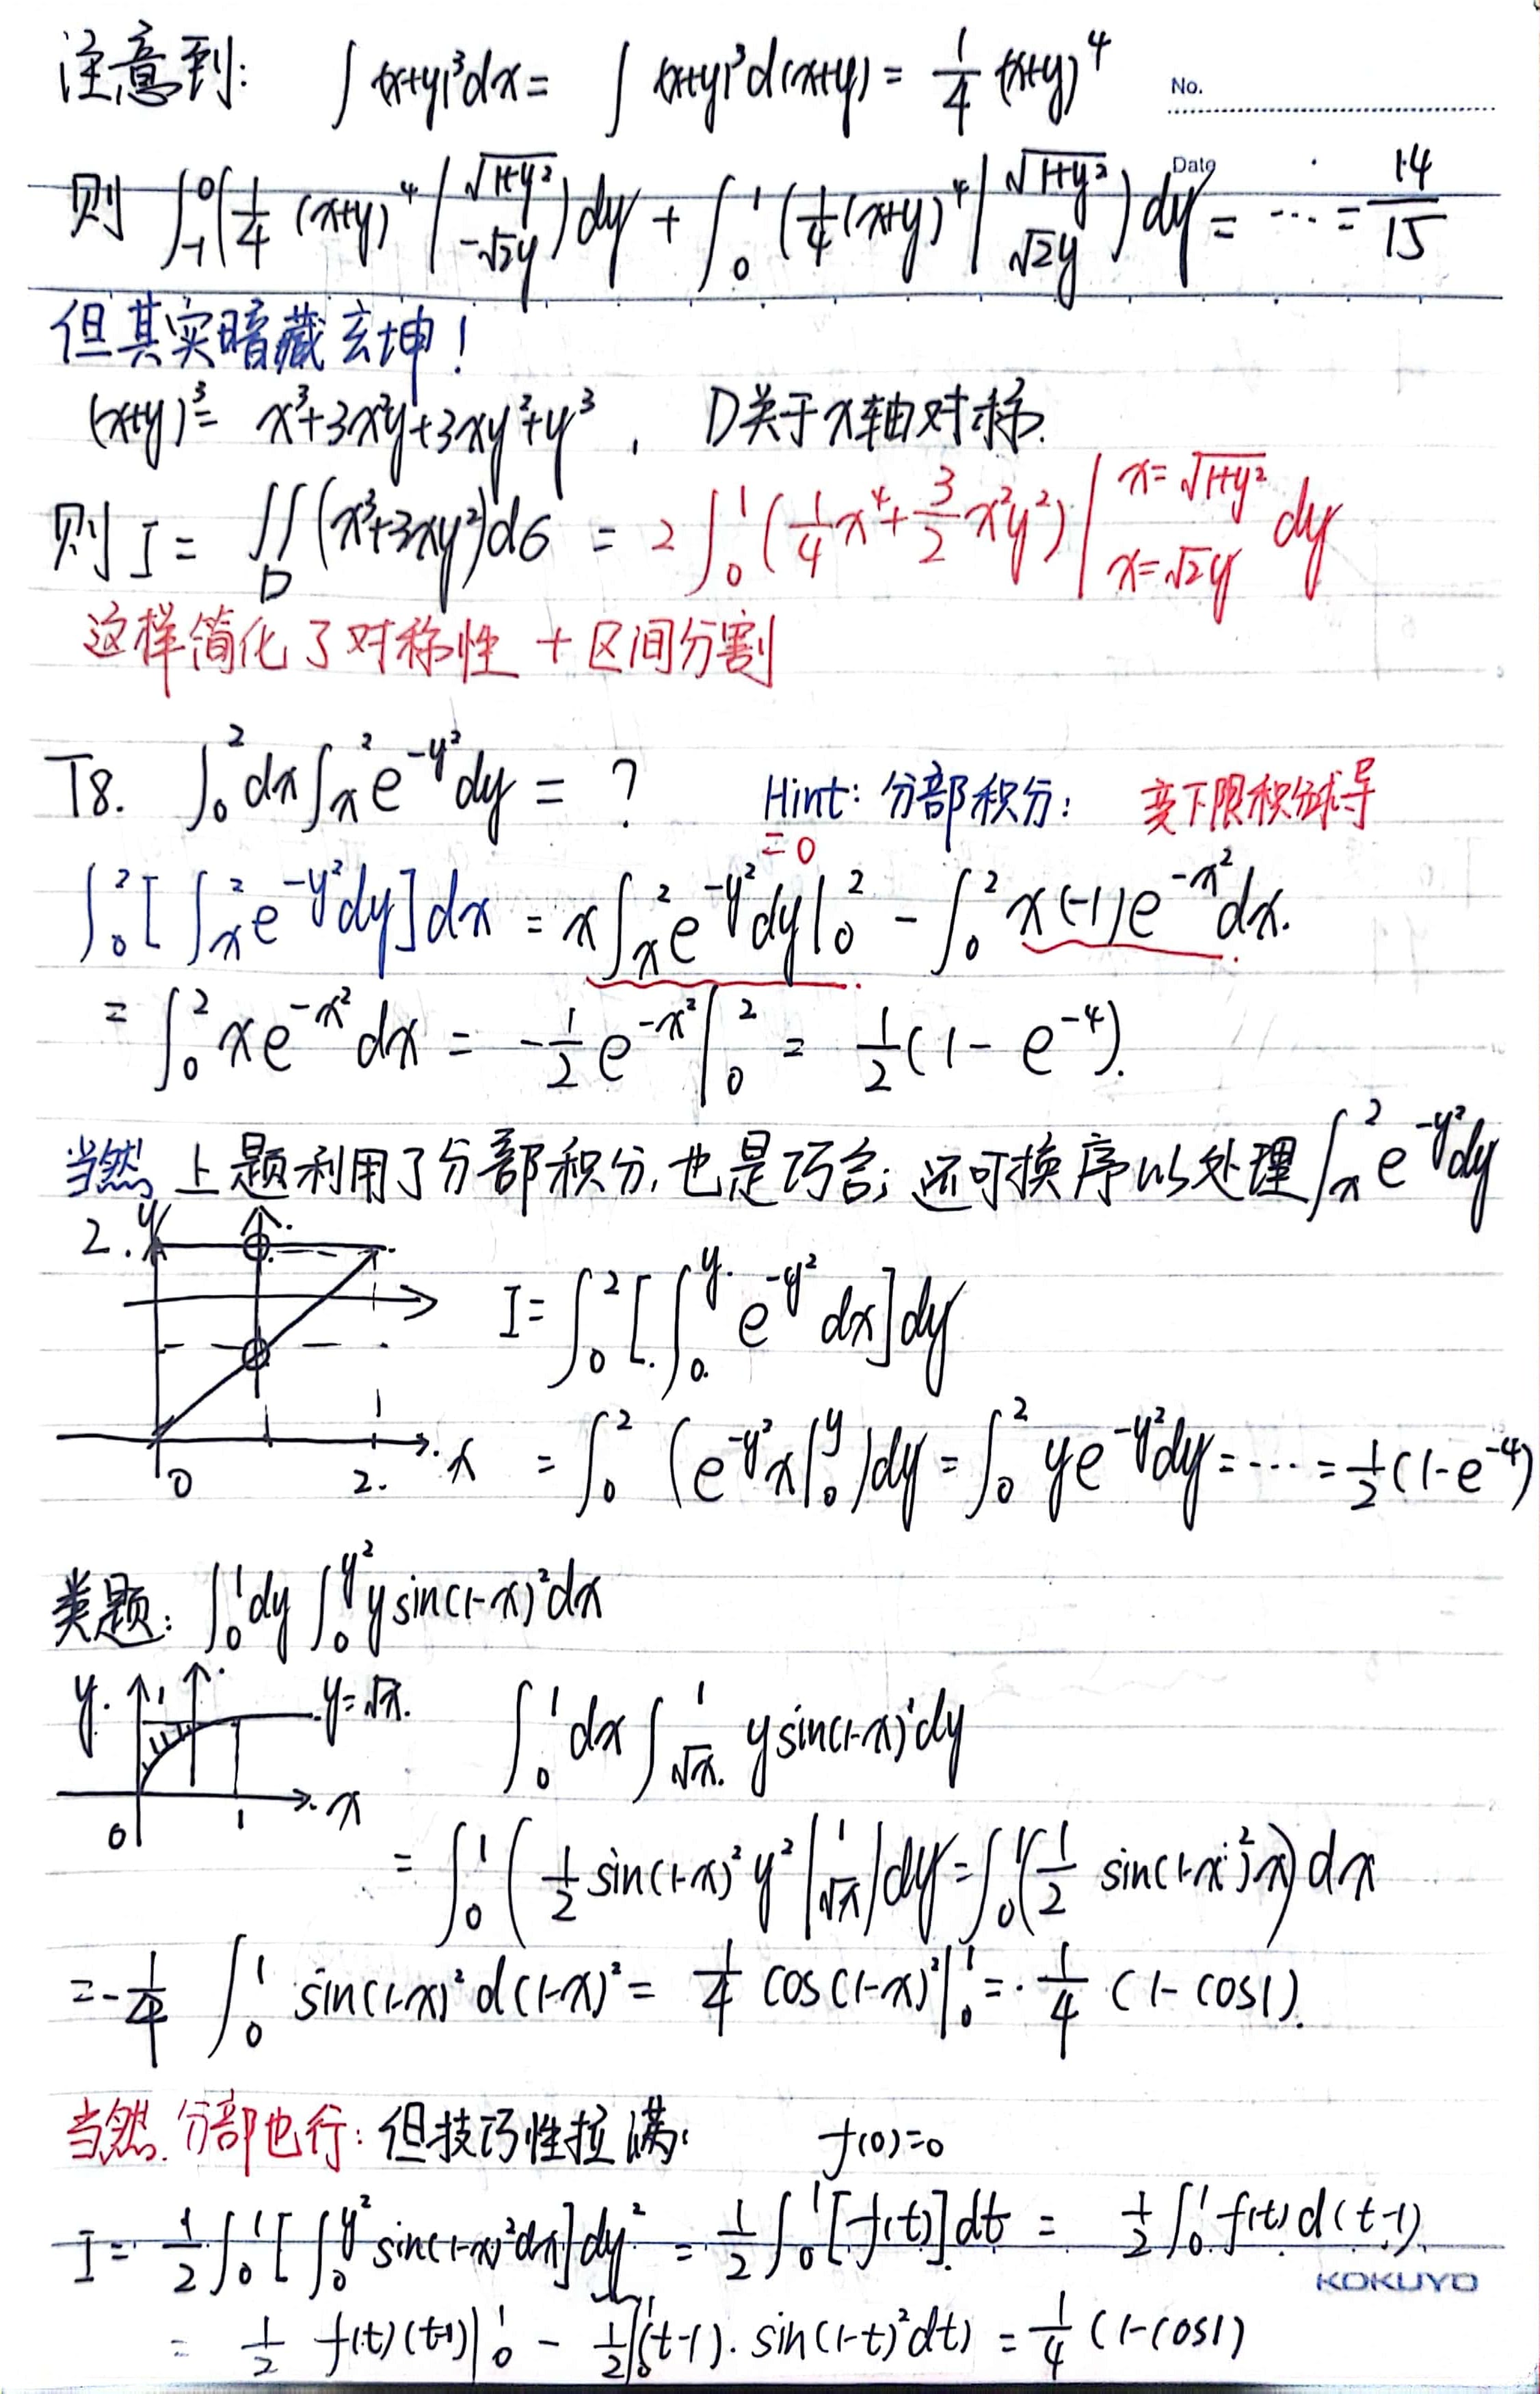 No.
注意到: ∫(x+y)³dx = ∫(x+y)³d(x+y) = 1/4 (x+y)⁴
Date
则 ∫_{-1}^{0}(1/4 (x+y)⁴ |_{-√2y}^{√(1+y²)})dy + ∫_0^1 (1/4(x+y)⁴|_{√2y}^{√(1+y²)})dy = ⋯ = 14/15
但其实暗藏玄坤!
(x+y)³ = x³+3x²y+3xy²+y³, D关于x轴对称.
则 I = ∬_D (x³+3xy²)dσ = 2∫_0^1 (1/4 x⁴ + 3/2 x²y²)|_{x=√2y}^{x=√(1+y²)} dy
这样简化了对称性 + 区间分割
T8. ∫_0^2 dx∫_x^2 e^{-y²}dy = ? Hint: 分部积分: 变下限积分求导
=0
∫_0^2 [∫_x^2 e^{-y²}dy]dx = x∫_x^2 e^{-y²}dy|_0^2 - ∫_0^2 x(-1)e^{-x²}dx.
= ∫_0^2 xe^{-x²}dx = -1/2 e^{-x²}|_0^2 = 1/2(1-e^{-4}).
当然, 上题利用了分部积分, 也是巧合; 还可换序以处理∫_x^2 e^{-y²}dy
2. y
I = ∫_0^2 [∫_0^y e^{-y²}dx]dy
0 2. x
= ∫_0^2 (e^{-y²}x|_0^y)dy = ∫_0^2 ye^{-y²}dy = ⋯ = 1/2(1-e^{-4})
类题: ∫_0^1 dy∫_0^{y²} y sin(1-x)²dx
y. 1 y=√x.
0 1 x
∫_0^1 dx∫_{√x}^1 y sin(1-x)²dy
= ∫_0^1 (1/2 sin(1-x)² y²|_{√x}^1)dy = ∫_0^1(1/2 sin(1-x)²x)dx
= -1/4 ∫_0^1 sin(1-x)²d(1-x)² = 1/4 cos(1-x)²|_0^1 = 1/4 (1-cos1).
当然. 分部也行: 但技巧性拉满. f(0)=0
I = 1/2∫_0^1[∫_0^{y²} sin(1-x)²dx]dy² = 1/2∫_0^1[f(t)]dt = 1/2∫_0^1 f(t)d(t-1).
KOKUYO
= 1/2 f(t)(t-1)|_0^1 - 1/2∫_0^1(t-1)·sin(1-t)²dt) = 1/4(1-cos1)